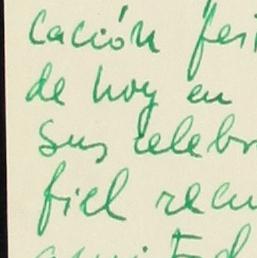 cación fe
de hoy en
sus celebr
fiel recu
amistad